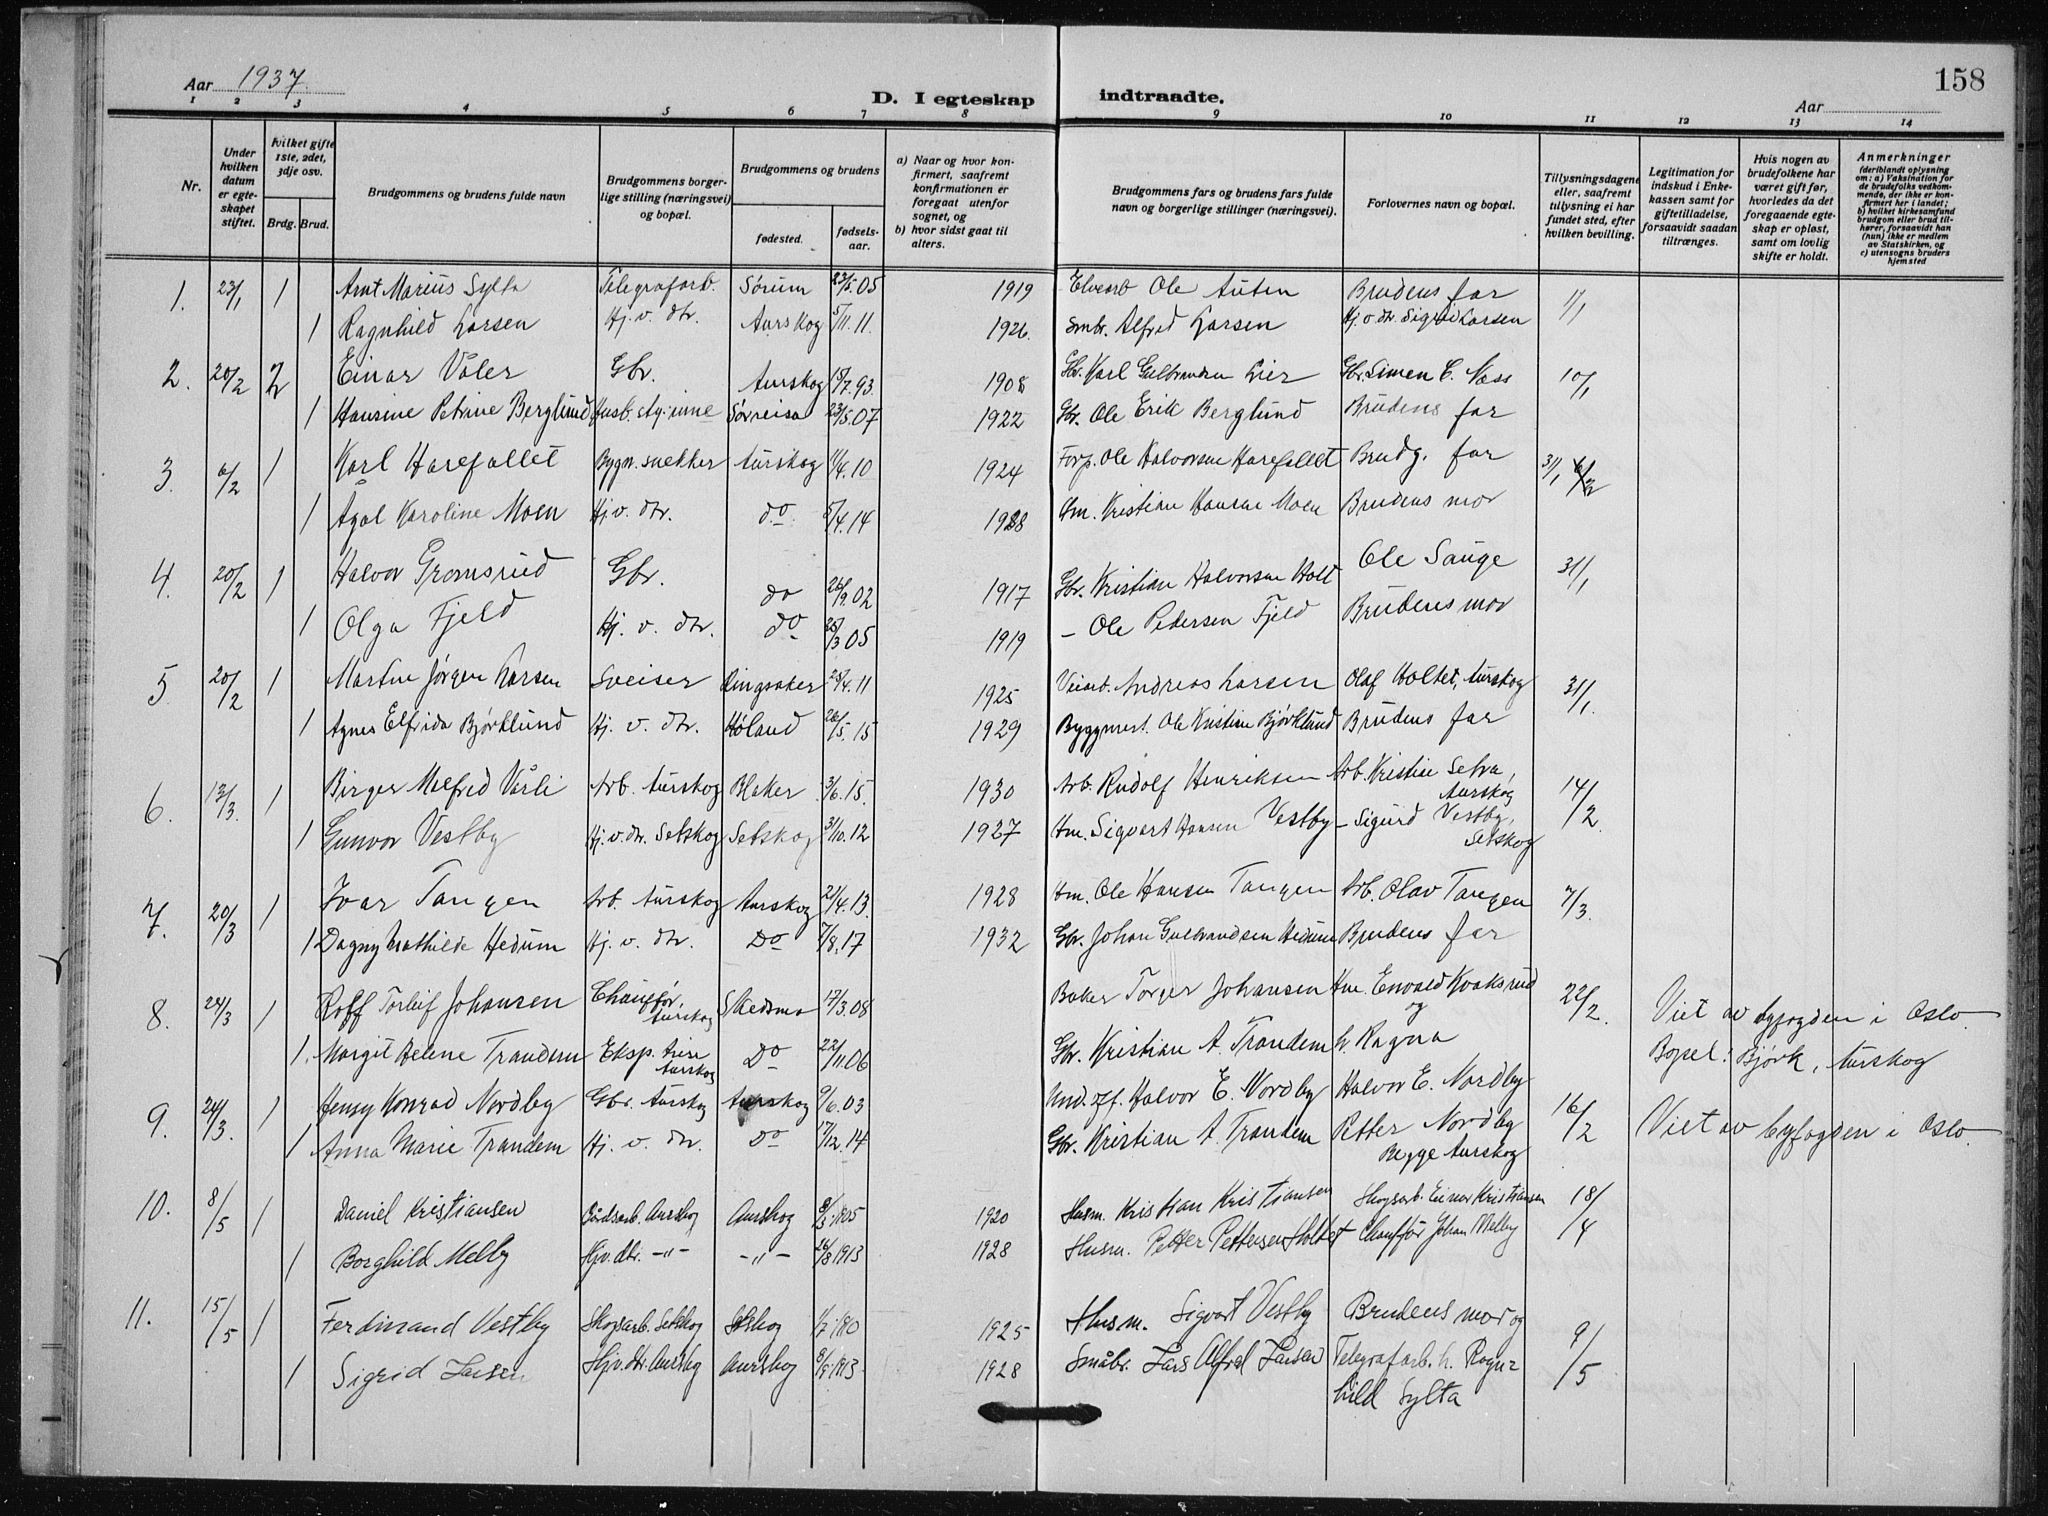 Aar 1937.
D. I egteskap indtraadte.
Aar
158
1 2 3 4 5 6 7 8 9 10 11 12 13 14
Nr.
Under hvilken datum er egteskapet stiftet.
hvilket gifte 1ste, 2det, 3dje osv.
Brdg. Brud.
Brudgommens og brudens fulde navn
Brudgommens borgerlige stilling (næringsvei) og bopæl.
Brudgommens og brudens
fødested.
fødselsaar.
a) Naar og hvor konfirmert, saafremt konfirmationen er foregaat utenfor sognet, og
b) hvor sidst gaat til alters.
Brudgommens fars og brudens fars fulde navn og borgerlige stillinger (næringsvei).
Forlovernes navn og bopæl.
Tillysningsdagene eller, saafremt tillysning ei har fundet sted, efter hvilken bevilling.
Legitimation for indskud i Enkekassen samt for giftetilladelse, forsaavidt saadan tiltrænges.
Hvis nogen av brudefolkene har været gift før, hvorledes da det foregaaende egteskap er opløst, samt om lovlig skifte er holdt.
Anmerkninger (deriblandt oplysning om: a) Vaksination for de brudefolks vedkommende, der ikke er konfirmert her i landet; b) hvilket kirkesamfund brudgom eller brud tilhører, forsaavidt han (hun) ikke er medlem av Statskirken, og c) utensogns bruders hjemsted
1. 23/1 1 Arnt Marius Sylta Telegrafarb. Sørum 23/5.05 1919 Elvearb Ole Auten Brudens far 1/1
1 Ragnhild Larsen Hj. v. dtr. Aurskog 5/11.11. 1926. Smbr. Alfred Larsen Hj. v. dtr. Sigrid Larsen
2. 20/2 2 Einar Våler Gbr. Aurskog 18/7.93. 1908 Gbr. Karl Gulbrandsen Lier Gbr. Simen C. Næss 10/1
1 Hansine Petrine Berglund Husb. styrinne Sørreisa 23/5.07 1922 Gbr. Ole Erik Berglund Brudens far
3. 6/2 1 Karl Harefallet Bygn. snekker Aurskog 11/4.10 1924 Forp. Ole Halvorsen Harefallet Brudg. far 31/1
1 Agøl Karoline Moen Hj v. dtr. do. 5/4.14 1928 Hm. Kristian Hansen Moen Brudens mor
4. 20/2 1 Halvor Gromsrud Gbr. do 26/9.02 1917 Gbr. Kristian Halvorsen Holt Ole Sauge 31/1
1 Olga Fjeld Hj. v. dtr. do 25/3 05 1919 - Ole Pedersen Fjeld Brudens mor
5 20/2 1 Martin Jørgen Larsen Sveiser Ringsaker 25/4.11 1925 Veiarb. Andreas Larsen Olaf Holtet, Aurskog 31/1.
1 Agnes Elfrida Bjørklund Hj. v. dtr. Høland 26/5.15 1929 Byggmest. Ole Kristian Bjørklund Brudens far
6. 13/3. 1 Birger Malfred Vårli Arb. Aurskog Blaker 3/6.15. 1930 Arb. Rudolf Henriksen Arb. Kristian Setra, Aurskog 14/2.
1 Gunvor Vestby Hj. v. dtr. Setskog Setskog 3/10.12 1927 Hm. Sigvart Hansen Vestby - Sigurd Vestby, Setskog
7. 20/3 1 Ivar Tangen Arb. Aurskog Aurskog 21/4.13. 1928 Hm. Ole Hansen Tangen Arb. Olav Tangen 7/3.
1 Dagny Mathilde Hedum Hj. v. dtr. Do 7/8.17 1932 Gbr. Johan Gulbrandsen Hedum Brudens far
8. 24/3 1 Rolf Torleif Johansen Chauffør, Aurskog Skedsmo 17/3.08 Baker Torger Johansen Hm. Envald Kvaksrud og 22/2. Viet av byfogden i Oslo.
1. Margit Helene Trandem Eksp. trise Aurskog Do 22/11.06 Gbr. Kristian A. Trandem h. Ragna Bopel: Bjørk, Aurskog
9. 24/3. 1 Jenny Konrad Nordby Gbr. Aurskog Aurskog 9/6.03 Und. off. Halvor E. Nordby Halvor E. Nordby 16/2 Viet av byfogden i Oslo.
1 Anna Marie Trandem Hj. v. dtr. Do 17/12.14 Gbr. Kristian A. Trandem Petter Nordby Begge Aurskog
10. 8/5 1 Daniel Kristiansen Gårdsarb. Aurskog Aurskog 1920 Husm. Kristian Kristiansen Skogsarb. Einar Kristiansen 18/4
1 Borghild Melby Hjv. dtr. -"- -"- 26/8 1913 1928 Husm. Petter Pettersen Holtet Chauffør Johan Melby
11. 15/5 1 Ferdinand Vestby Skogsarb. Setskog Setskog 1925 Husm. Sigvart Vestby Brudens mor og 9/5
1 Sigrid Larsen Hjv. dtr. Aurskog Aurskog 1928 Småbr. Lars Alfred Larsen Telegrafarb. h. Ragnhild Sylta